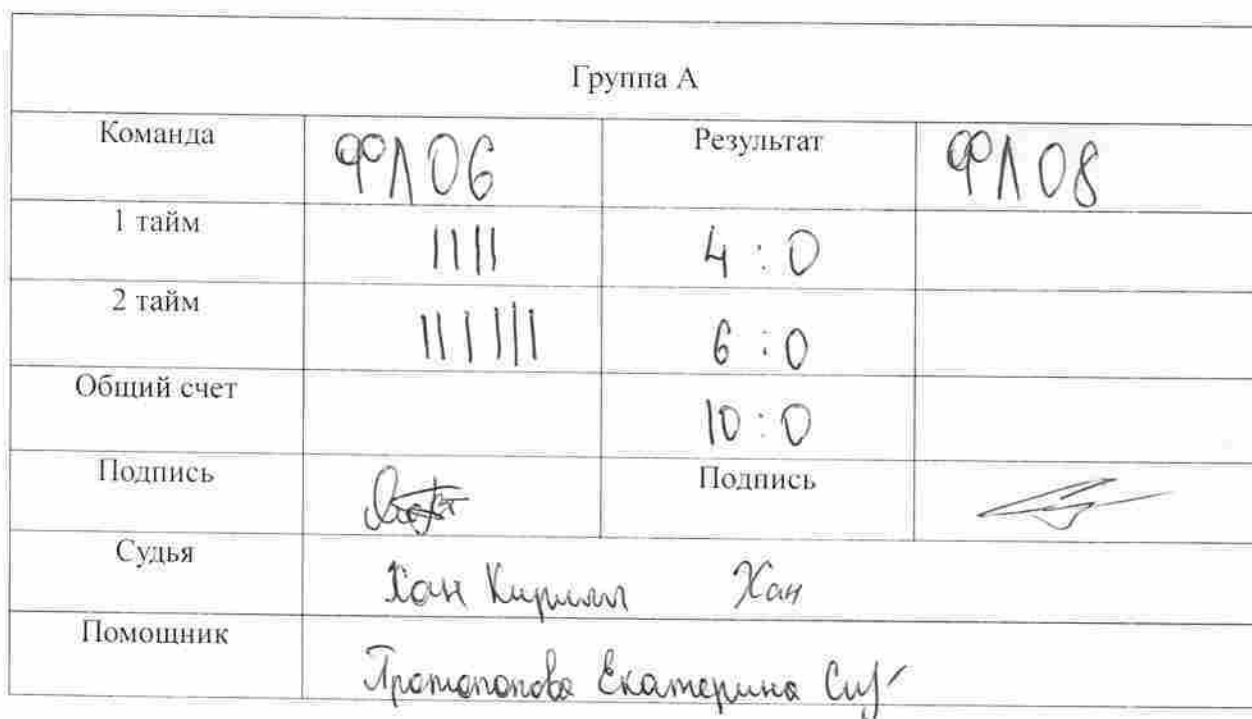 Группа А
Команда ФЛ06 Результат ФЛ08
1 тайм |||| 4 : 0
2 тайм |||||| 6 : 0
Общий счет 10 : 0
Подпись Подпись
Судья Хан Кирилл Хан
Помощник Протопопова Екатерина